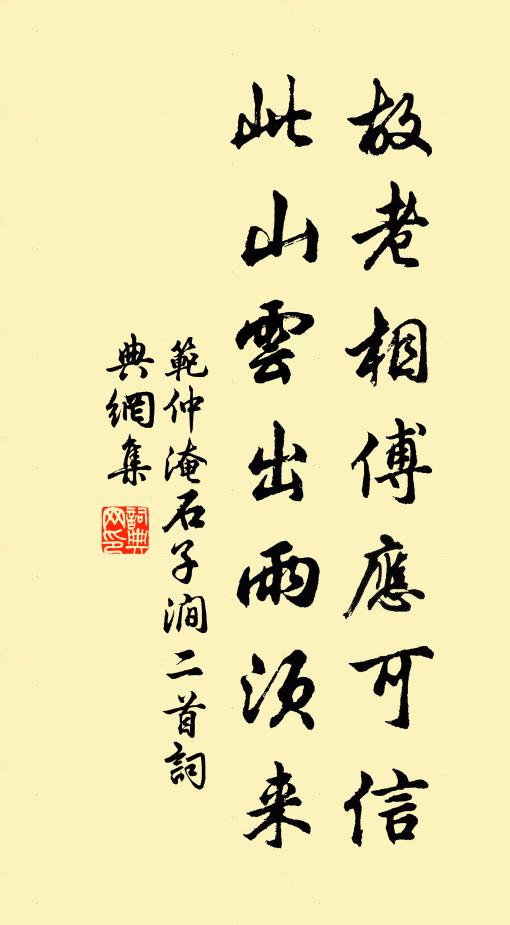 故老相傅應可信
此山雲出雨須来
範仲淹石子澗二首詞
典網集
詞典网印